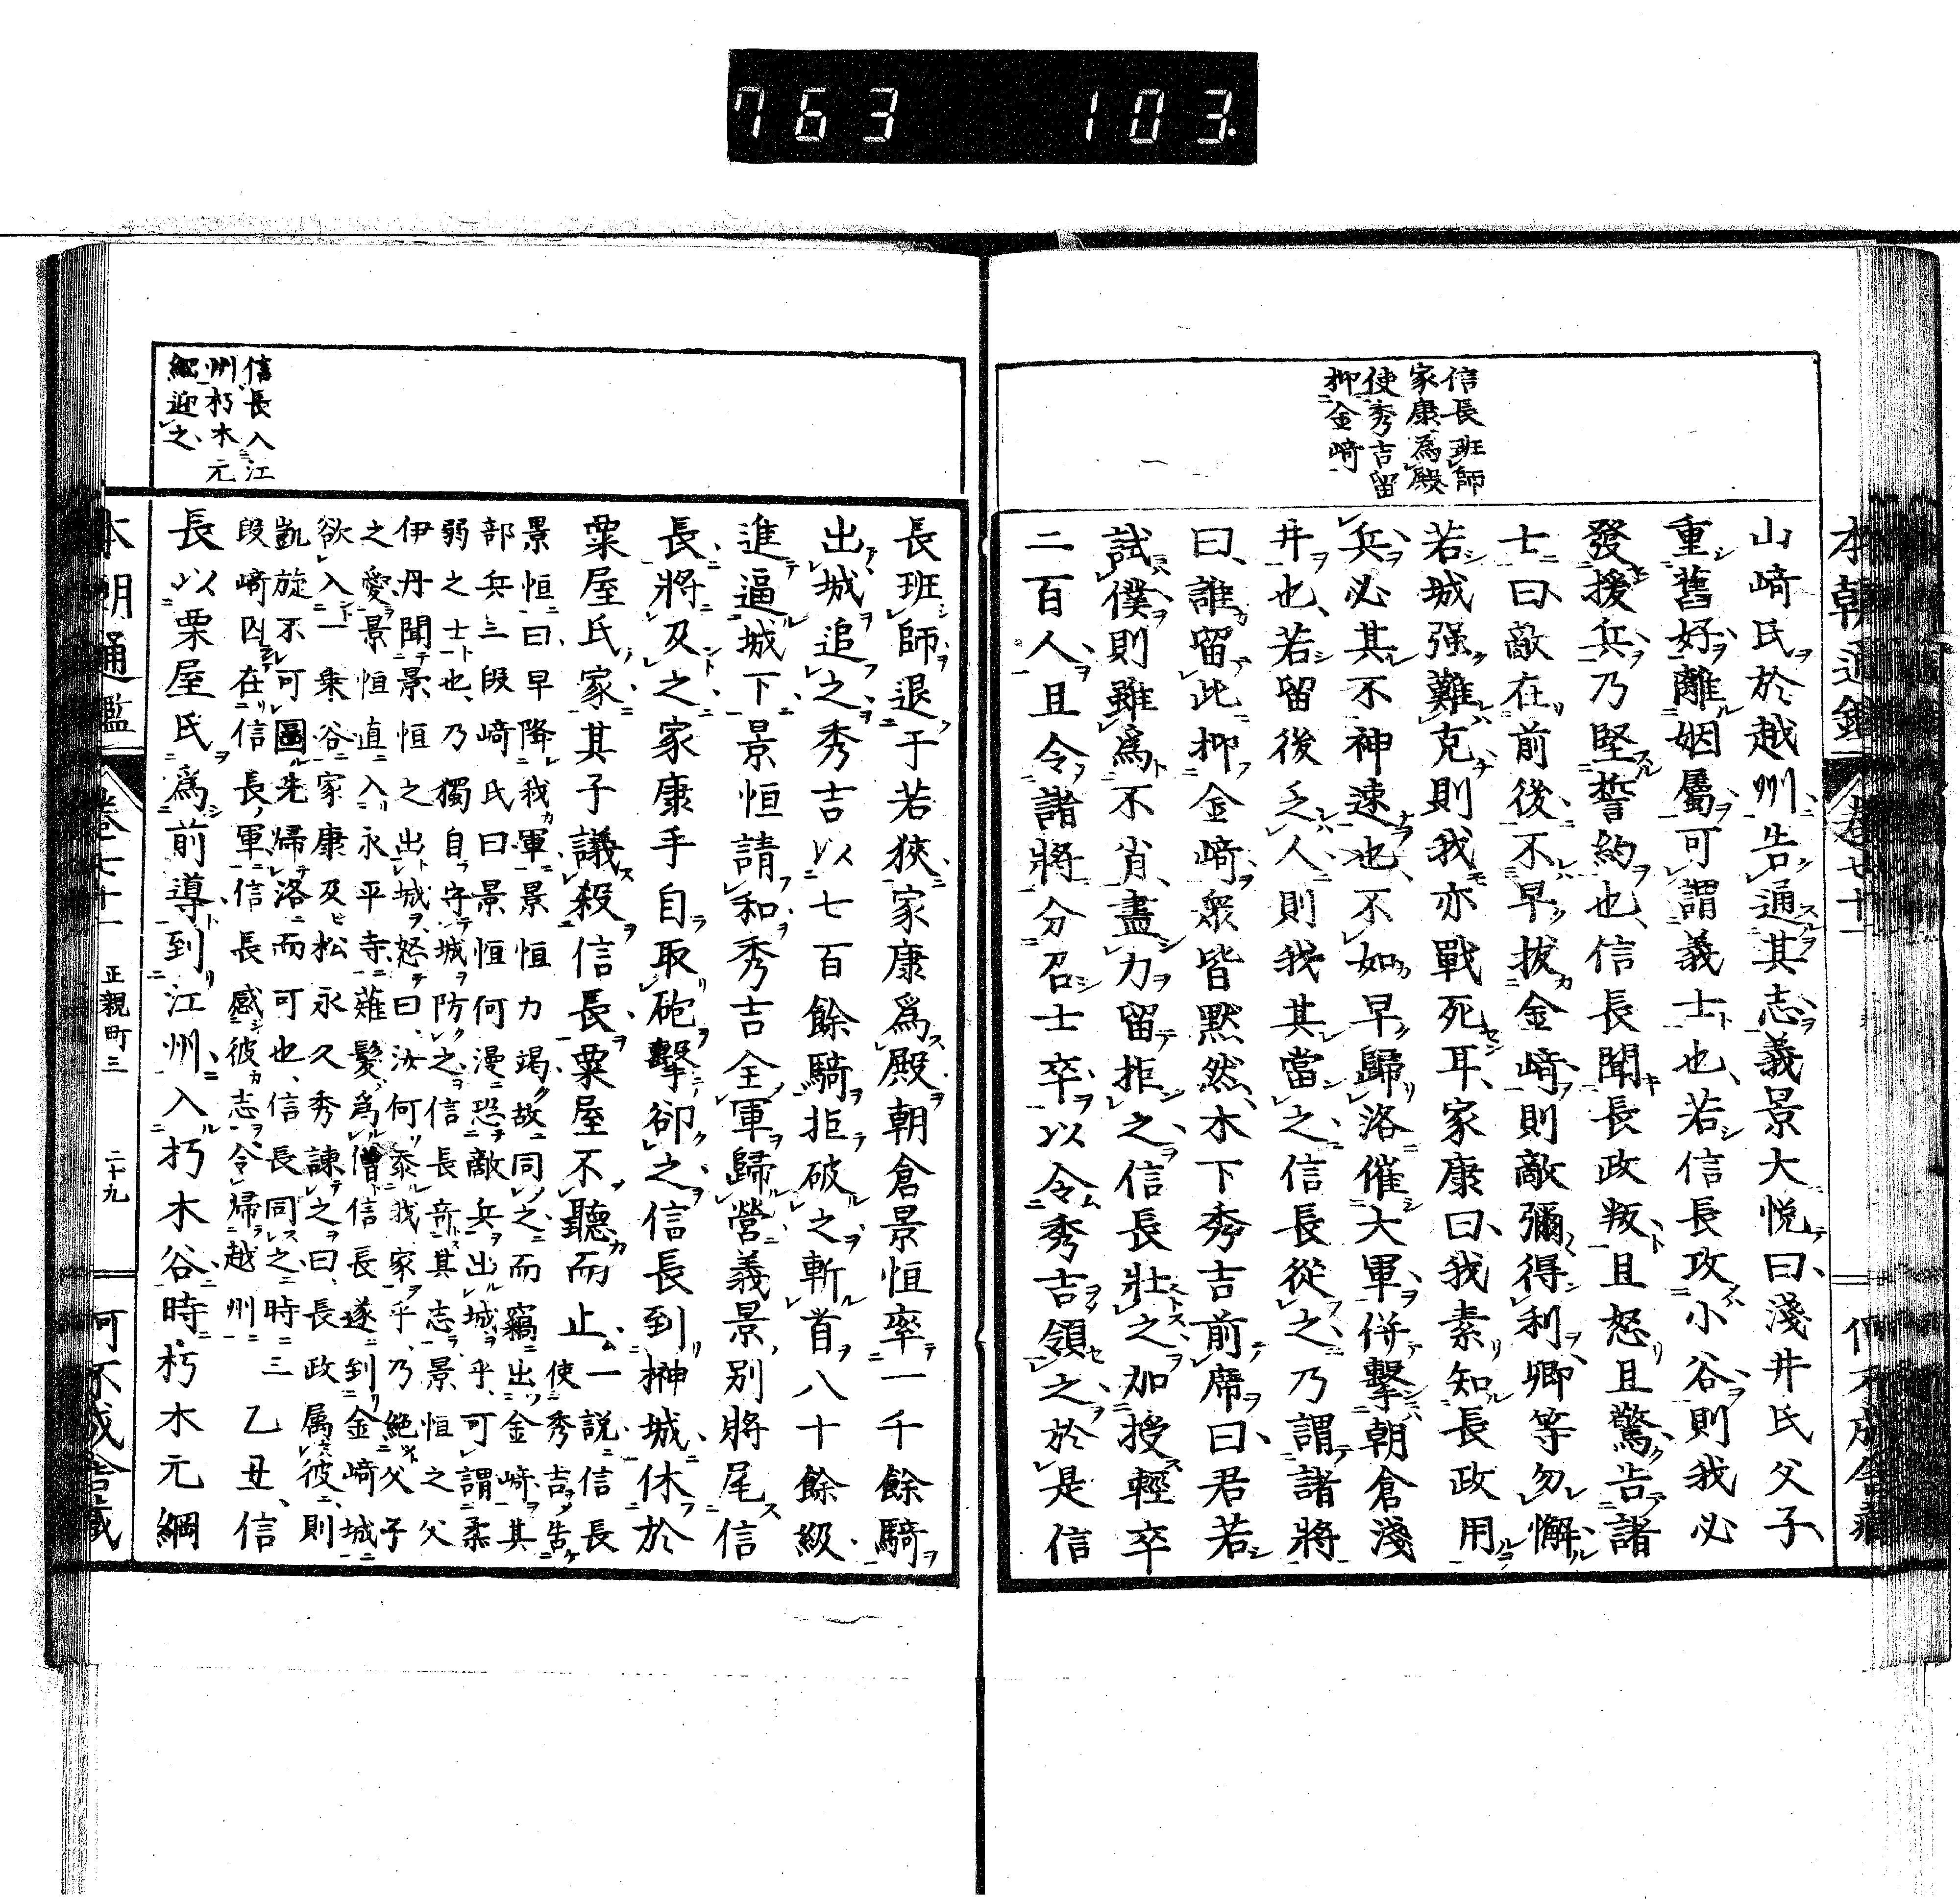 763 103.
信長班師
家康為殿
使秀吉留
抑金崎
山崎氏於越州告通其志義景大悦曰淺井氏父子
重舊好離姻屬可謂義士也若信長攻小谷則我必
發援兵乃堅誓約也信長聞長政叛且怒且驚告諸
士曰敵在前後不早拔金崎則敵彌得利卿等勿懈
若城强難克則我亦戰死耳家康曰我素知長政用
兵必其不神速也不如早歸洛催大軍併擊朝倉淺
井也若留後乏人則我其當之信長從之乃謂諸將
曰誰留此抑金崎衆皆默然木下秀吉前席曰君若
試僕則雖爲不肖盡力留拒之信長壯之加授輕卒
二百人且令諸將分召士卒以令秀吉領之於是信
信長入江
州朽木元
綱迎之
長班師退于若狹家康爲殿朝倉景恒率一千餘騎
出城追之秀吉以七百餘騎拒破之斬首八十餘級
進逼城下景恒請和秀吉全軍歸營義景別將尾信
長將及之家康手自取砲擊卻之信長到榊城休於
粟屋氏家其子議殺信長粟屋不聽而止一説信長
使秀吉告
景恒曰早降我軍景恒力竭故同之而竊出金崎其
部兵三段崎氏曰景恒何漫恐敵兵出城乎可謂柔
弱之士也乃獨自守城防之信長奇其志景恒之父
伊丹聞景恒之出城怒曰汝何忝我家乎乃絶父子
之愛景恒直入永平寺薙髮爲僧信長遂到金崎城
欲入一乘谷家康及松永久秀諫之曰長政属彼則
凱旋不可圖先帰洛而可也信長同之時三
段崎囚在信長軍信長感彼志令帰越州
乙丑信
長以粟屋氏爲前導到江州入朽木谷時朽木元綱
本朝通鑑
卷七十一
正親町三
二十九